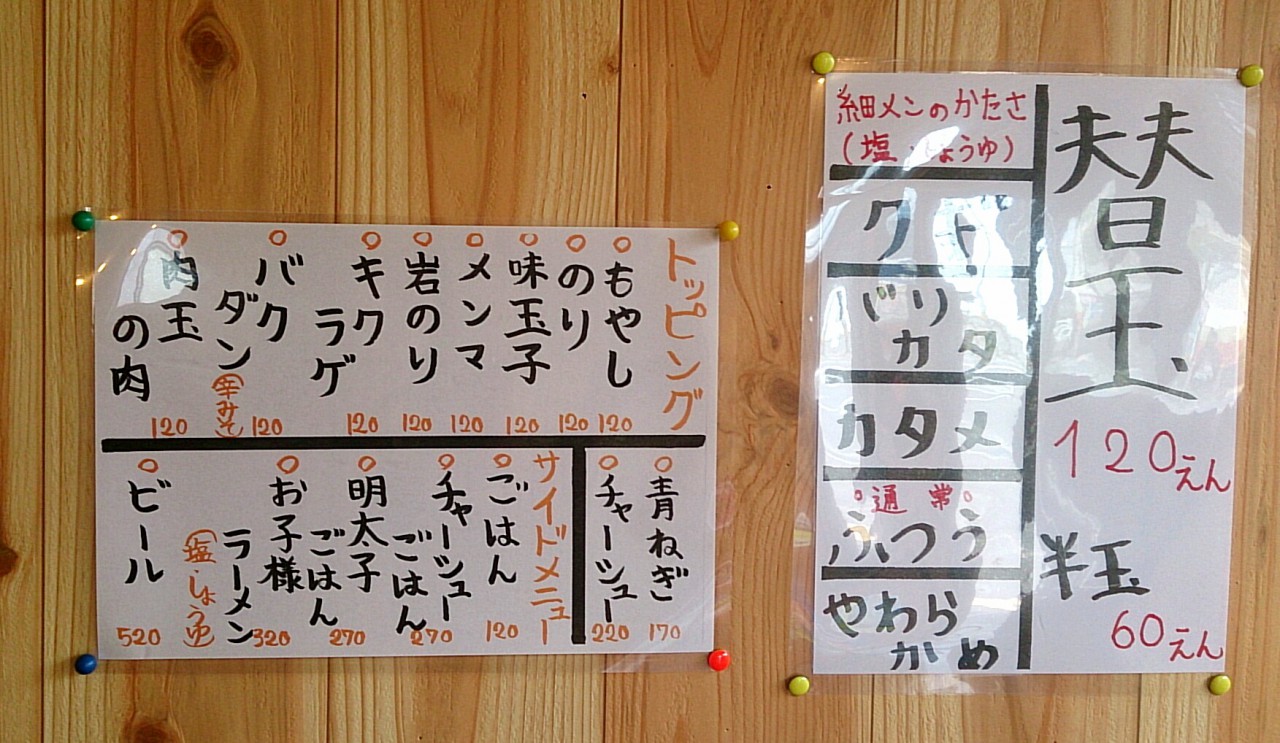 トッピング
○もやし 120
○のり 120
○味玉子 120
○メンマ 120
○岩のり 120
○キクラゲ 120
○バクダン 120
(辛みそ)
○肉玉の肉 120
○青ねぎ 170
○チャーシュー 220
サイドメニュー
○ごはん 120
○チャーシューごはん 270
○明太子ごはん 270
○お子様ラーメン 320
(塩・しょうゆ)
○ビール 520
替玉
120えん
半玉
60えん
細メンのかたさ
(塩・しょうゆ)
クド
バリカタ
カタメ
○通常○
ふつう
やわらかめ